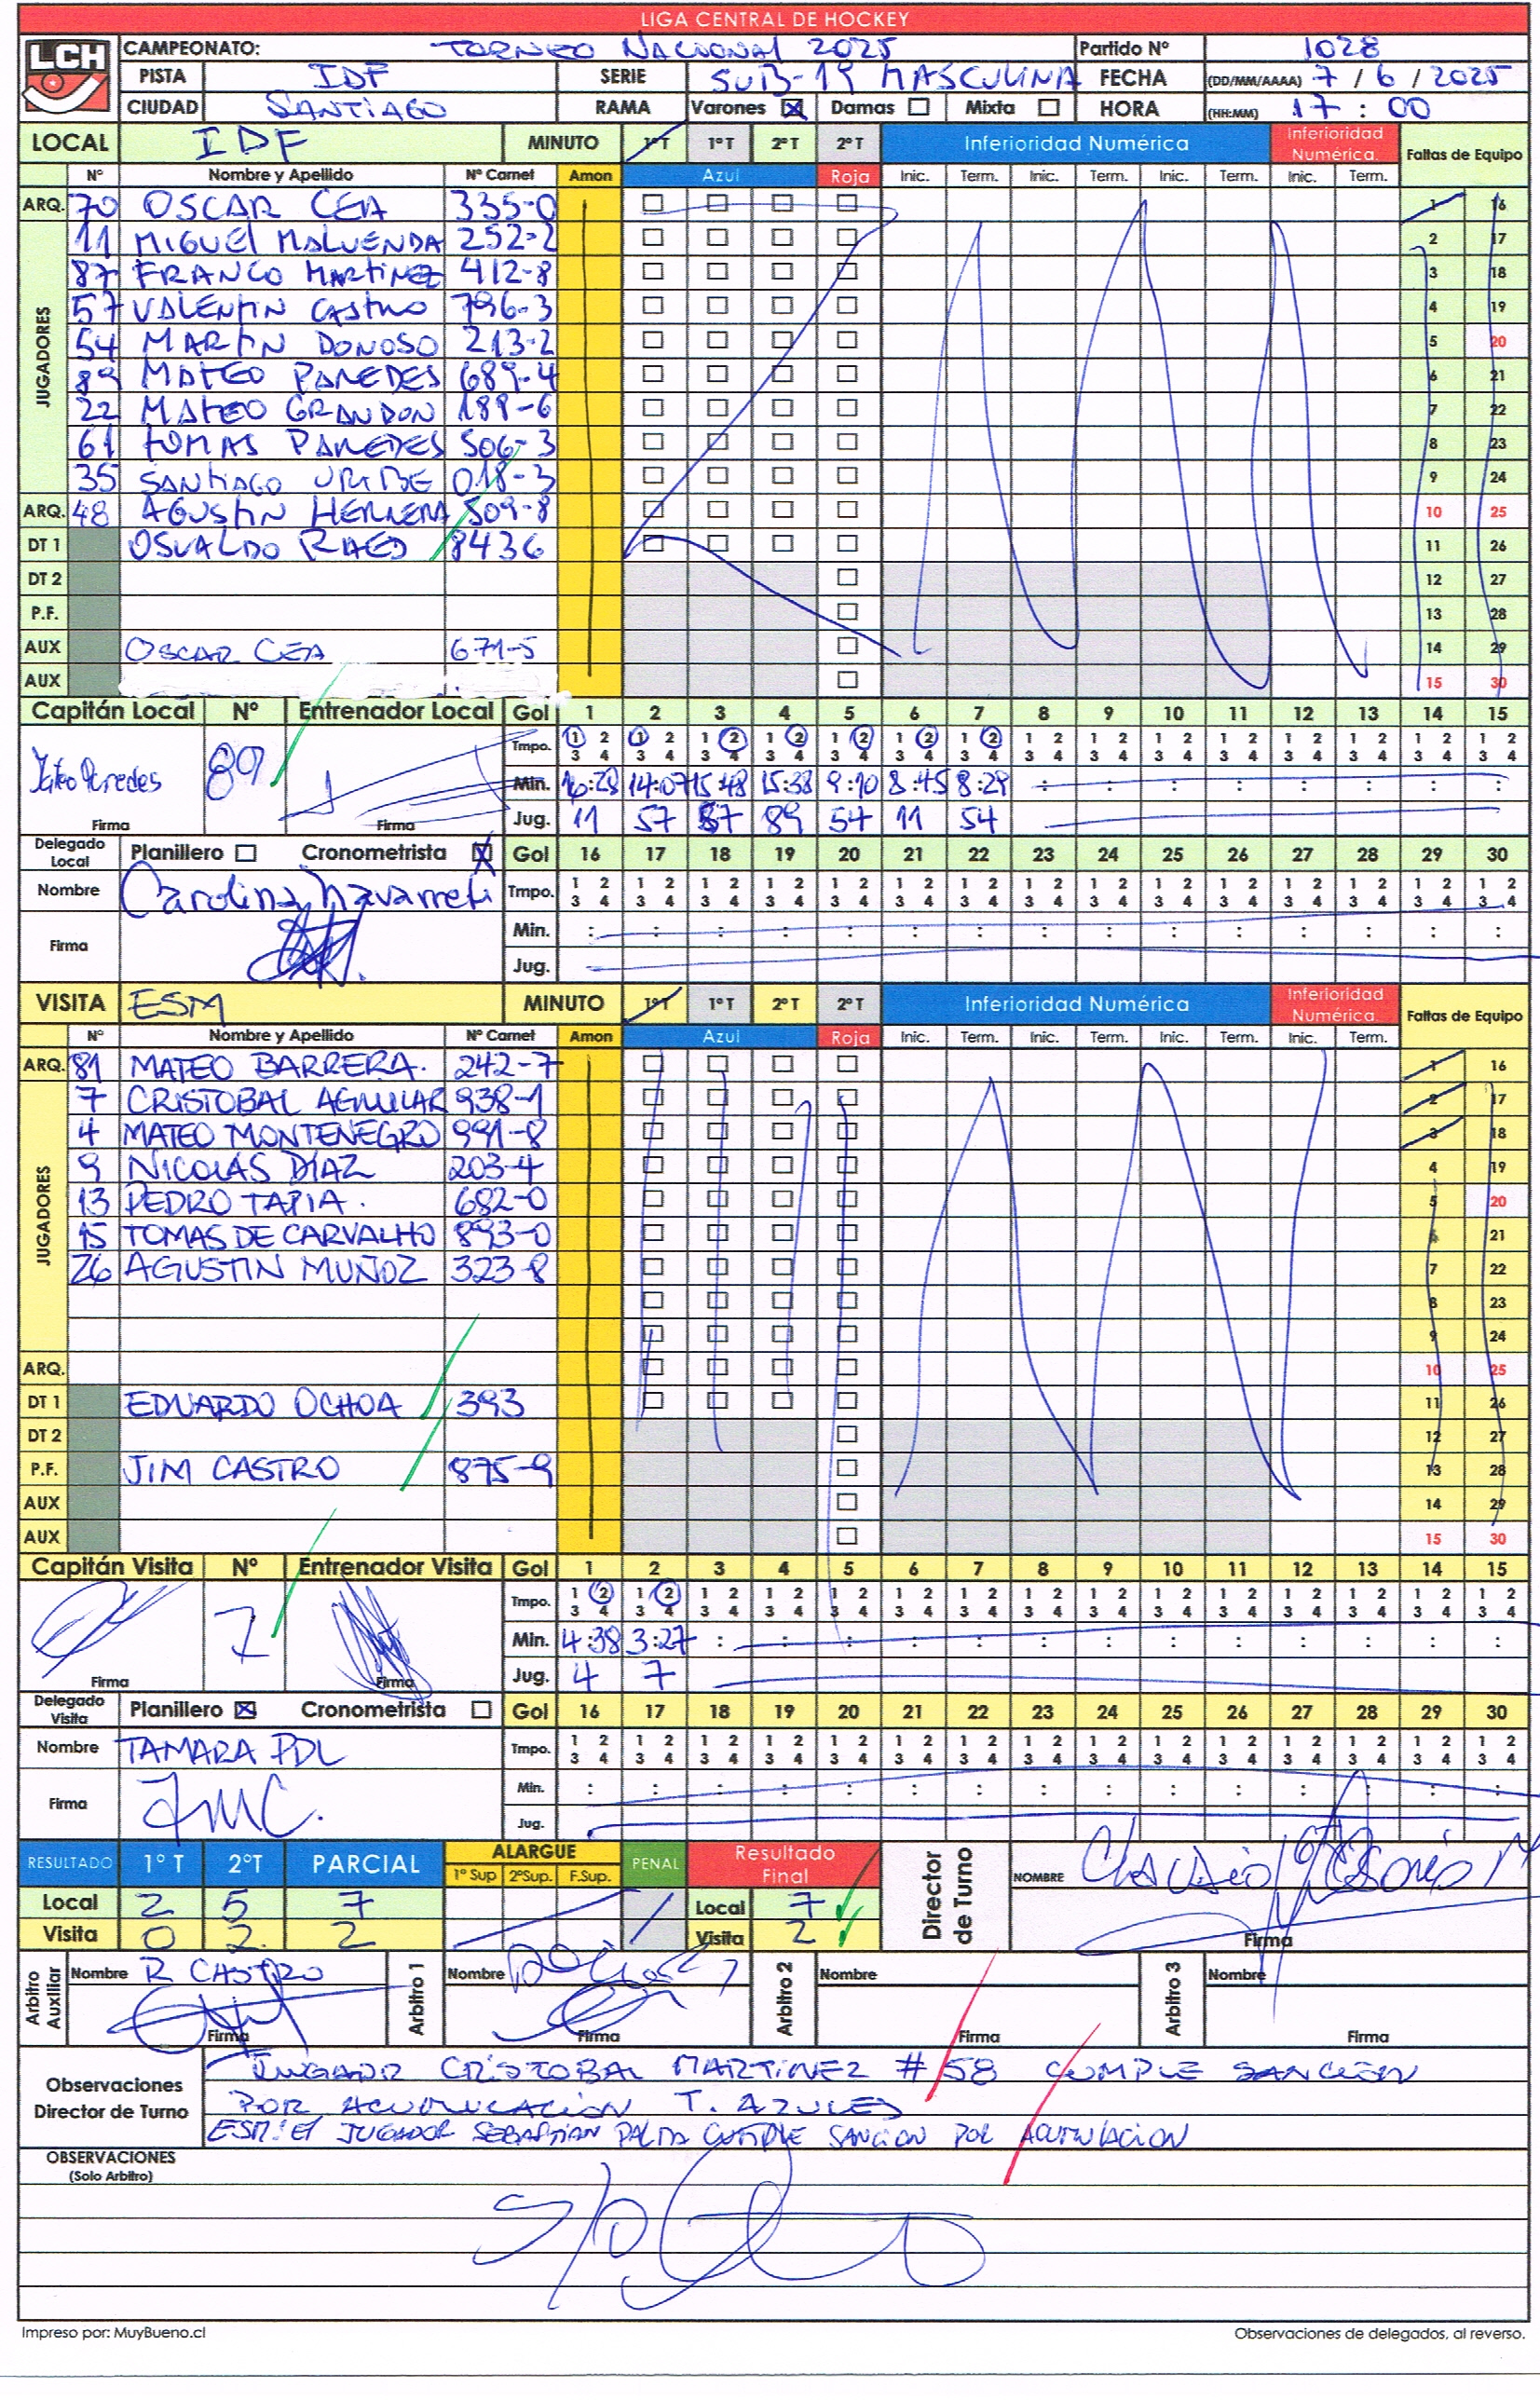 LIGA CENTRAL DE HOCKEY
LCH
CAMPEONATO: TORNEO NACIONAL 2025 Partido Nº 1028
PISTA IDF SERIE SUB-19 MASCULINA FECHA (DD/MM/AAAA) 7 / 6 / 2025
CIUDAD SANTIAGO RAMA Varones Damas Mixta HORA (HH:MM) 17 : 00
LOCAL IDF MINUTO 1º T 1º T 2º T 2º T Inferioridad Numérica Inferioridad Numérica. Faltas de Equipo
Nº Nombre y Apellido Nº Carnet Amon Azul Roja Inic. Term. Inic. Term. Inic. Term. Inic. Term.
ARQ. 70 OSCAR CEA 335-0 1 16
JUGADORES
11 MIGUEL MALUENDA 252-2 2 17
87 FRANCO MARTINEZ 412-8 3 18
57 VALENTIN CASTRO 796-3 4 19
54 MARTIN DONOSO 213-2 5 20
89 MATEO PAREDES 689-4 6 21
22 MATEO GRANDON 189-6 7 22
61 TOMAS PAREDES 506-3 8 23
35 SANTIAGO URIBE 018-3 9 24
ARQ. 48 AGUSTIN HERRERA 509-8 10 25
DT 1 OSVALDO RAED 8436 11 26
DT 2 12 27
P.F. 13 28
AUX OSCAR CEA 671-5 14 29
AUX 15 30
Capitán Local Nº Entrenador Local Gol 1 2 3 4 5 6 7 8 9 10 11 12 13 14 15
Tmpo. 1 2 1 2 1 2 1 2 1 2 1 2 1 2 1 2 1 2 1 2 1 2 1 2 1 2 1 2 1 2
3 4 3 4 3 4 3 4 3 4 3 4 3 4 3 4 3 4 3 4 3 4 3 4 3 4 3 4 3 4
Mateo Paredes 89 Min. 16:28 14:07 15:48 15:38 9:10 8:45 8:29 : : : : : : : :
Firma Firma Jug. 11 57 57 89 54 11 54
Delegado Local Planillero Cronometrista Gol 16 17 18 19 20 21 22 23 24 25 26 27 28 29 30
Nombre Carolina Navarrete Tmpo. 1 2 1 2 1 2 1 2 1 2 1 2 1 2 1 2 1 2 1 2 1 2 1 2 1 2 1 2 1 2
3 4 3 4 3 4 3 4 3 4 3 4 3 4 3 4 3 4 3 4 3 4 3 4 3 4 3 4 3 4
Firma Min. : : : : : : : : : : : : : : :
Jug.
VISITA ESM MINUTO 1º T 1º T 2º T 2º T Inferioridad Numérica Inferioridad Numérica. Faltas de Equipo
Nº Nombre y Apellido Nº Carnet Amon Azul Roja Inic. Term. Inic. Term. Inic. Term. Inic. Term.
ARQ. 81 MATEO BARRERA. 242-7 1 16
JUGADORES
7 CRISTOBAL AGUILAR 938-1 2 17
4 MATEO MONTENEGRO 991-8 3 18
9 NICOLÁS DÍAZ 203-4 4 19
13 PEDRO TAPIA. 682-0 5 20
15 TOMAS DE CARVALHO 893-0 6 21
26 AGUSTIN MUÑOZ 323-8 7 22
8 23
9 24
ARQ. 10 25
DT 1 EDUARDO OCHOA 393 11 26
DT 2 12 27
P.F. JIM CASTRO 875-9 13 28
AUX 14 29
AUX 15 30
Capitán Visita Nº Entrenador Visita Gol 1 2 3 4 5 6 7 8 9 10 11 12 13 14 15
Tmpo. 1 2 1 2 1 2 1 2 1 2 1 2 1 2 1 2 1 2 1 2 1 2 1 2 1 2 1 2 1 2
3 4 3 4 3 4 3 4 3 4 3 4 3 4 3 4 3 4 3 4 3 4 3 4 3 4 3 4 3 4
7 Min. 4:38 3:27 : : : : : : : : : : : : :
Firma Firma Jug. 4 7
Delegado Visita Planillero Cronometrista Gol 16 17 18 19 20 21 22 23 24 25 26 27 28 29 30
Nombre TAMARA PDL Tmpo. 1 2 1 2 1 2 1 2 1 2 1 2 1 2 1 2 1 2 1 2 1 2 1 2 1 2 1 2 1 2
3 4 3 4 3 4 3 4 3 4 3 4 3 4 3 4 3 4 3 4 3 4 3 4 3 4 3 4 3 4
Firma Min. : : : : : : : : : : : : : : :
Jug.
RESULTADO 1º T 2ºT PARCIAL ALARGUE 1º Sup 2ºSup. F.Sup. PENAL Resultado Final Director de Turno NOMBRE
Local 2 5 7 Local 7
Visita 0 2. 2 Visita 2 Firma
Arbitro Auxiliar Nombre R CASTRO Arbitro 1 Nombre Arbitro 2 Nombre Arbitro 3 Nombre
Firma Firma Firma Firma
Observaciones Director de Turno
JUGADOR CRISTOBAL MARTINEZ #58 CUMPLE SANCIÓN
POR ACUMULACIÓN T. AZULES
ESM: EL JUGADOR SEBASTIAN PALMA CUMPLE SANCION POR ACUMULACION
OBSERVACIONES
(Solo Arbitro)
S/O
Impreso por: MuyBueno.cl Observaciones de delegados, al reverso.